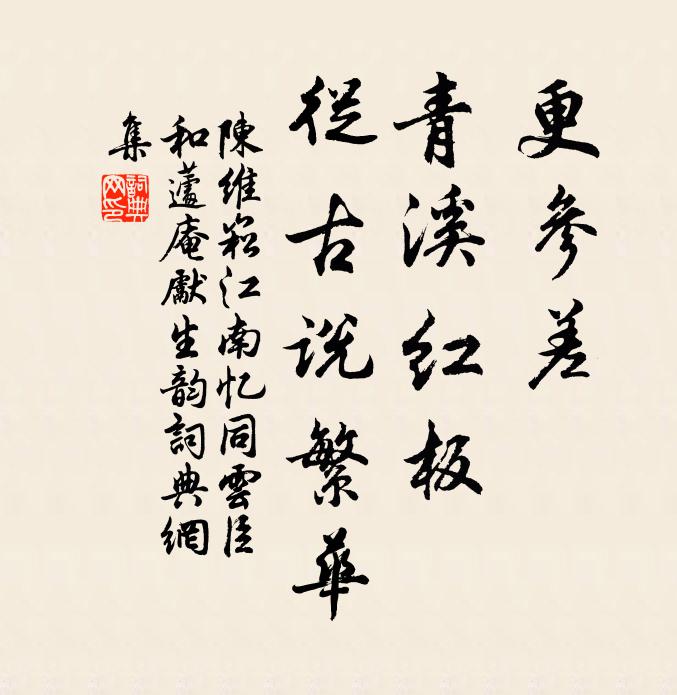 更參差
青溪紅板
從古説繁華
陳維崧江南忆同雲臣
和蘧庵獻生韵詞典網
集
詞典網印